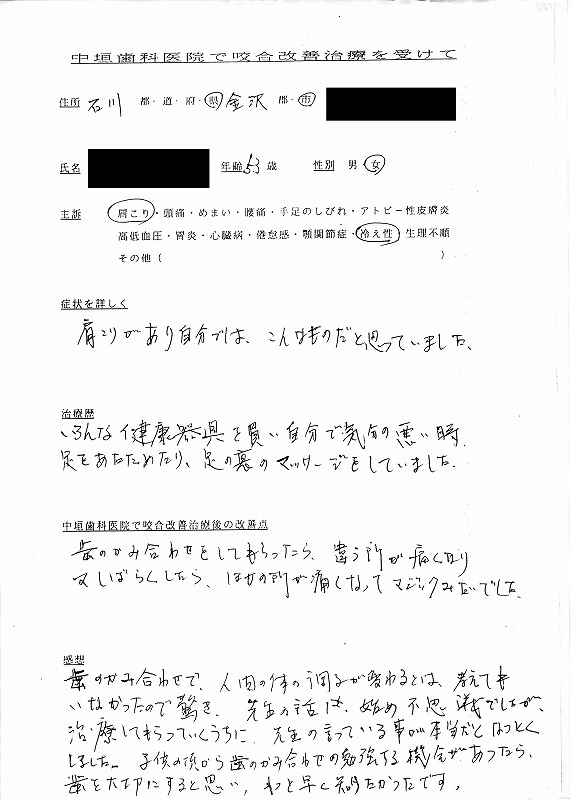 中垣歯科医院で咬合改善治療を受けて
住所 石川 都・道・府・県 金沢 郡・市
氏名 年齢 53 歳 性別 男・女
主訴 肩こり・頭痛・めまい・腰痛・手足のしびれ・アトピー性皮膚炎
高低血圧・胃炎・心臓病・倦怠感・顎関節症・冷え性・生理不順
その他( )
症状を詳しく
肩こりがあり自分では、こんなものだと思っていました、
治療歴
いろんな健康器具を買い自分で気分の悪い時、
足をあたためたり、足の裏のマッサージをしていました。
中垣歯科医院で咬合改善治療後の改善点
歯のかみ合わせをしてもらったら、違う所が痛くなり
又しばらくしたら、ほかの所が痛くなってマジックみたいでした。
感想
歯のかみ合わせで、人間の体の調子が変わるとは、考えても
いなかったので驚き、先生の話は、始め不思議でしたが、
治療してもらっていくうちに、先生の言っている事が本当だとなっとく
しました。子供の頃から歯のかみ合わせの勉強する機会があったら、
歯を大切にすると思い、もっと早く知りたかったです。